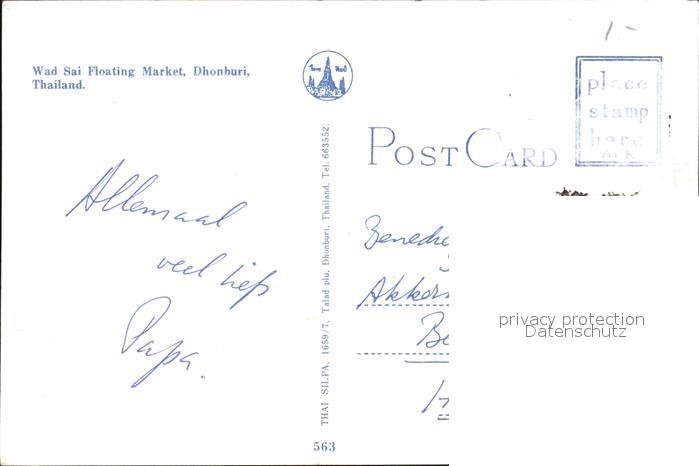 Wad Sai Floating Market, Dhonburi,
Thailand.
Allemaal
veel liefs
Papa.
THAI SILPA. 1659/7, Talad plu, Dhonburi, Thailand. Tel. 663552.
563
1-
place
stamp
here
POST CARD
Benedic
Akker
Be
privacy protection
Datenschutz